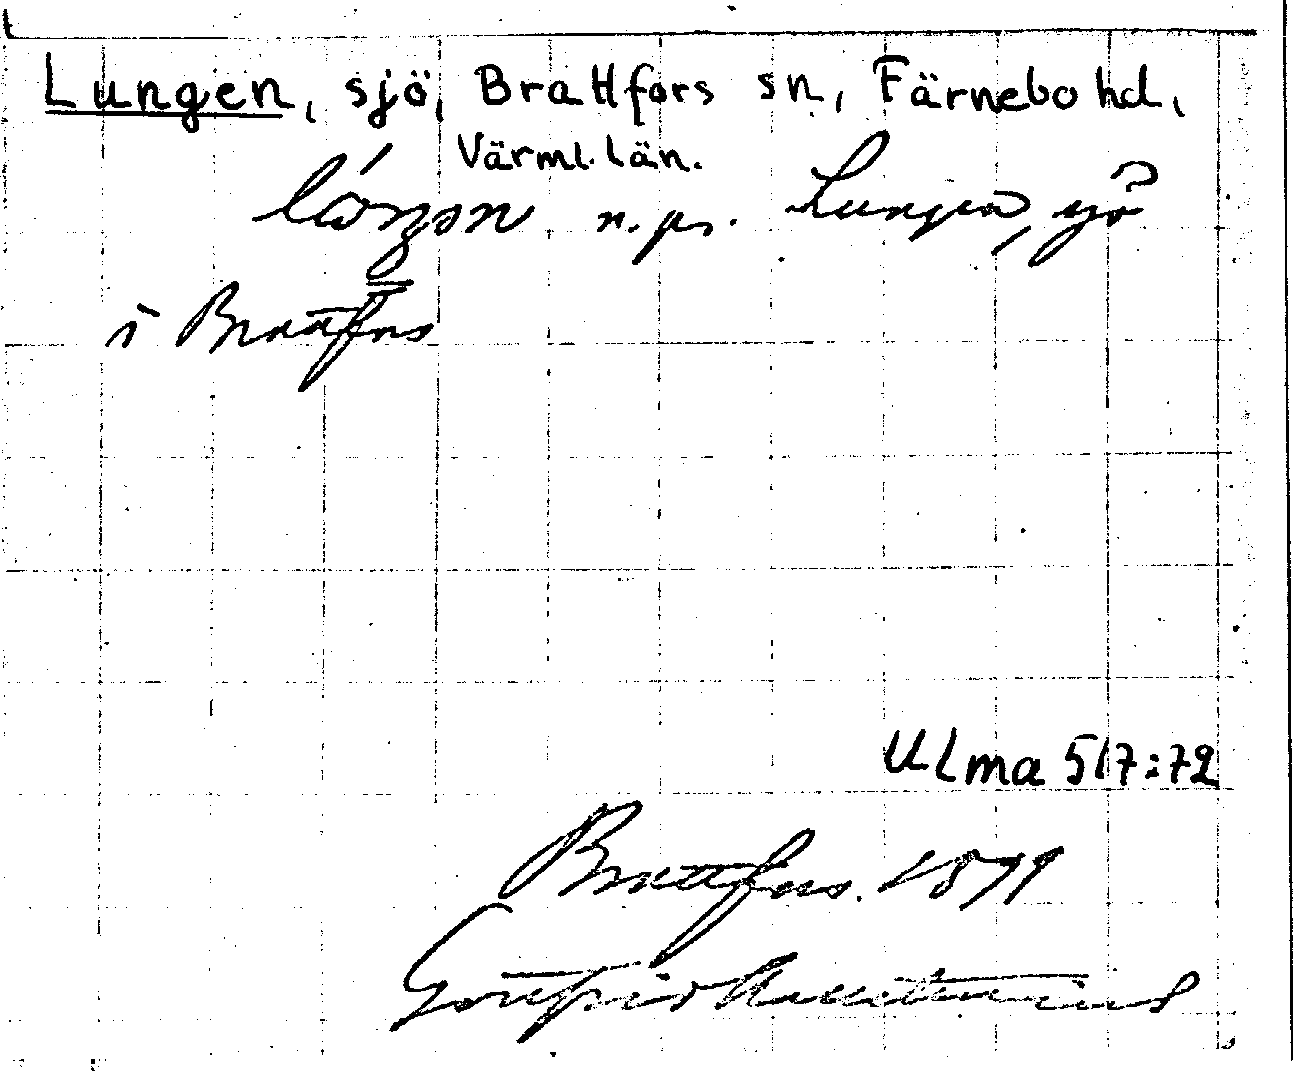 Lungen, sjö, Brattfors sn, Färnebo hd,
Värml. län.
n. pr. Lungen, sjö
i Brattfors
ULMA 517:72
Brattfors. 1899
Gottfrid Kallstenius